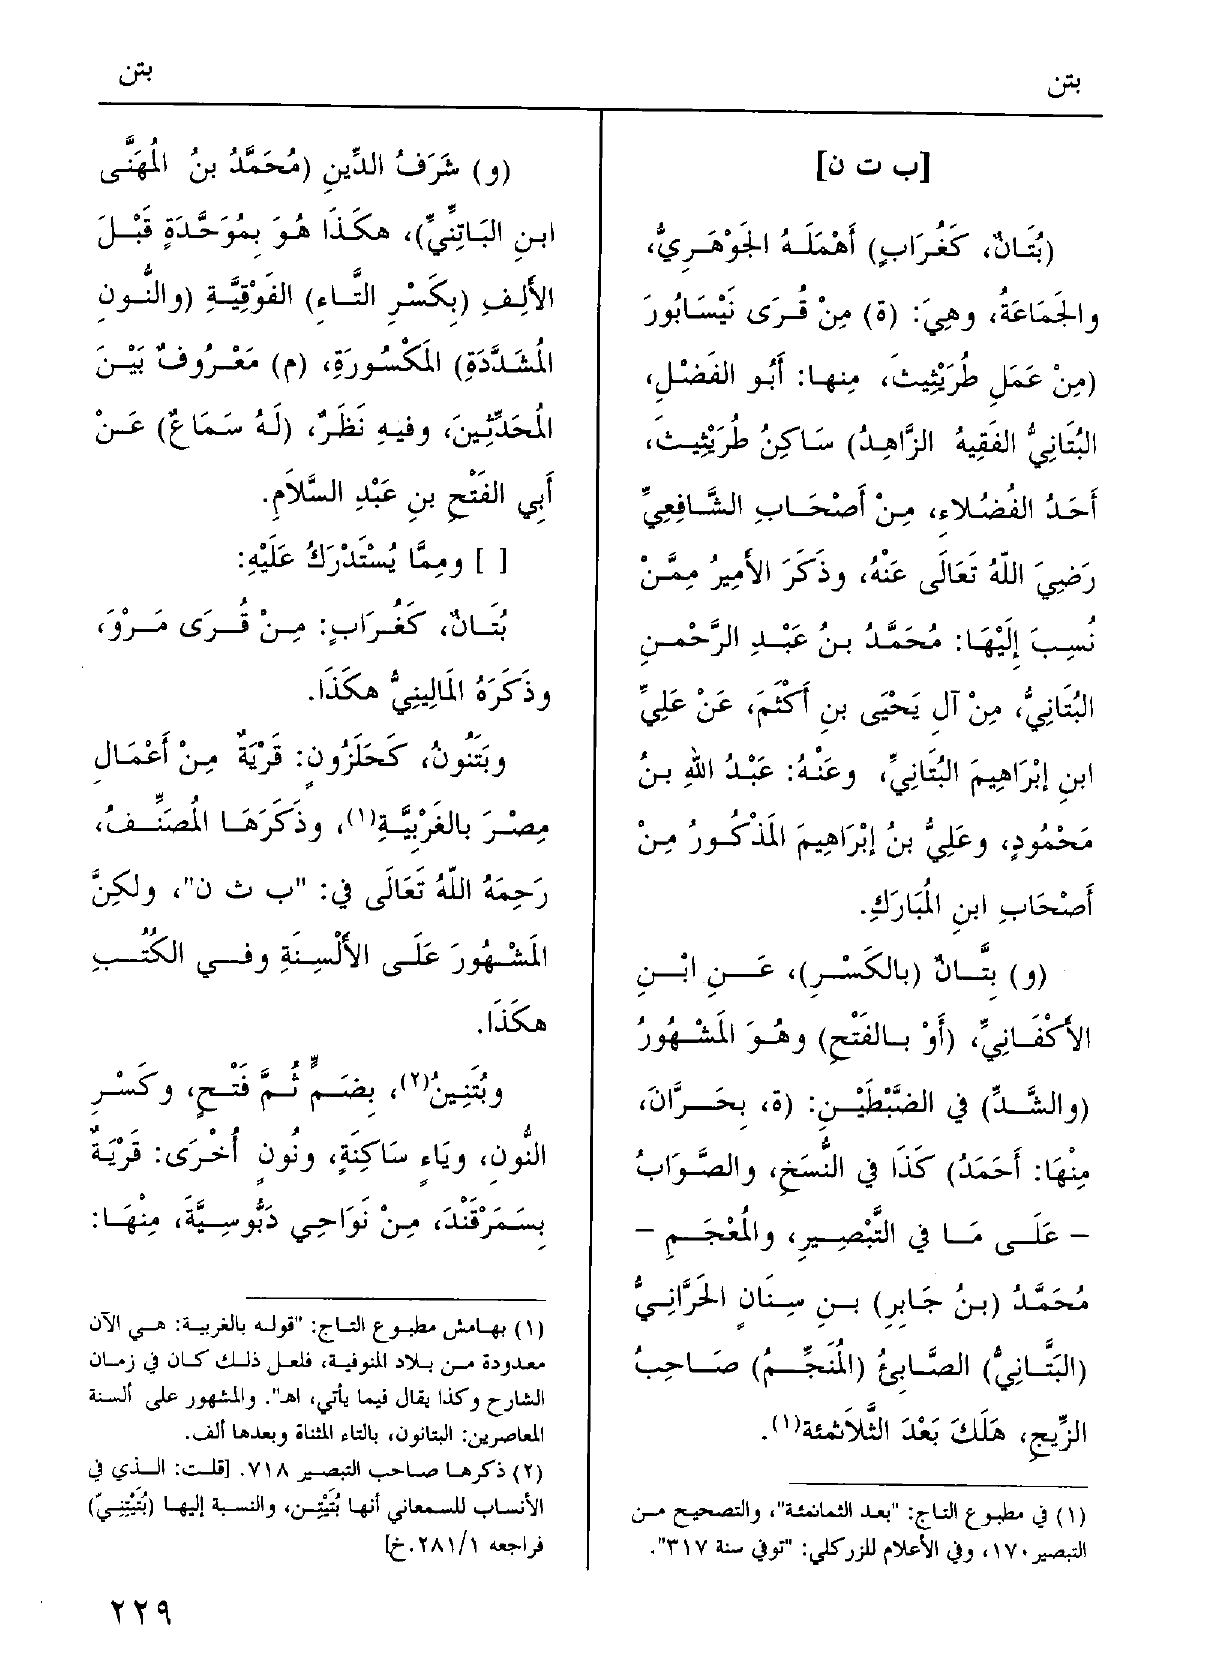 بتن
بتن
[ب ت ن]
(بُتَانٌ، كَغُرَابٍ) أَهْمَلَهُ الجَوْهَرِيُّ،
والجَمَاعَةُ، وهِيَ: (ة) مِنْ قُرَى نَيْسَابُورَ
(مِنْ عَمَلِ طُرَيْثِيثَ، مِنها: أَبُو الفَضْلِ،
البُتَانِيُّ الفَقِيهُ الزَّاهِدُ) سَاكِنُ طُرَيْثِيثَ،
أَحَدُ الفُضَلاءِ، مِنْ أَصْحَابِ الشَّافِعِيِّ
رَضِيَ اللهُ تَعَالَى عَنْهُ، وذَكَرَ الأَمِيرُ مِمَّنْ
نُسِبَ إِلَيْهَا: مُحَمَّدُ بنُ عَبْدِ الرَّحْمنِ
البُتَانِيُّ، مِنْ آلِ يَحْيَى بنِ أَكْثَمَ، عَنْ عَلِيِّ
ابنِ إبْرَاهِيمَ البُتَانِيِّ، وعَنْهُ: عَبْدُ اللهِ بنُ
مَحْمُودٍ، وعَلِيُّ بنُ إبْرَاهِيمَ المَذْكُورُ مِنْ
أَصْحَابِ ابنِ المُبَارَكِ.
(و) بِتَّانٌ (بالكَسْرِ)، عَنِ ابْنِ
الأَكْفَانِيِّ، (أَوْ بالفَتْحِ) وهُوَ المَشْهُورُ
(والشَّدِّ) فِي الضَّبْطَيْنِ: (ة، بِحَرَّانَ،
مِنْهَا: أَحْمَدُ) كَذَا فِي النُّسَخِ، والصَّوَابُ
- عَلَى مَا فِي التَّبْصِيرِ، والمُعْجَمِ -
مُحَمَّدُ (بنُ جَابِرِ) بنِ سِنَانٍ الحَرَّانِيُّ
(البَتَّانِيُّ) الصَّابِئُ (المُنَجِّمُ) صَاحِبُ
الزِّيجِ، هَلَكَ بَعْدَ الثَّلاَثمئة(١).
(١) في مطبوع التاج: "بعد الثمانمئة"، والتصحيح من
التبصير ١٧٠، وفي الأعلام للزركلي: "توفي سنة ٣١٧".
(و) شَرَفُ الدِّينِ (مُحَمَّدُ بنُ المُهَنَّى
ابنِ البَاتِنِّيِّ)، هكَذَا هُوَ بِمُوَحَّدَةٍ قَبْلَ
الأَلِفِ (بِكَسْرِ التَّاءِ) الفَوْقِيَّةِ (والنُّونِ
المُشَدَّدَةِ) المَكْسُورَةِ، (م) مَعْرُوفٌ بَيْنَ
المُحَدِّثِينَ، وفِيهِ نَظَرٌ، (لَهُ سَمَاعٌ) عَنْ
أَبِي الفَتْحِ بنِ عَبْدِ السَّلَامِ.
[ ] ومِمَّا يُسْتَدْرَكُ عَلَيْهِ:
بُتَانٌ، كَغُرَابٍ: مِنْ قُرَى مَرْوَ،
وذَكَرَهُ المَالِينِيُّ هكَذَا.
وبَتَنُونُ، كَحَلَزُونٍ: قَرْيَةٌ مِنْ أَعْمَالِ
مِصْرَ بالغَرْبِيَّةِ(١)، وذَكَرَهَا المُصَنِّفُ،
رَحِمَهُ اللهُ تَعَالَى فِي: "ب ث ن"، ولكِنَّ
المَشْهُورَ عَلَى الأَلْسِنَةِ وفِي الكُتُبِ
هكَذَا.
وبُتَنِينُ(٢)، بِضَمٍّ ثُمَّ فَتْحٍ، وكَسْرِ
النُّونِ، ويَاءٍ سَاكِنَةٍ، ونُونٍ أُخْرَى: قَرْيَةٌ
بِسَمَرْقَنْدَ، مِنْ نَوَاحِي دَبُّوسِيَّةَ، مِنْهَا:
(١) بهامش مطبوع التاج: "قوله بالغربية: هي الآن
معدودة من بلاد المنوفية، فلعل ذلك كان في زمان
الشارح وكذا يقال فيما يأتي، اهـ". والمشهور على ألسنة
المعاصرين: البتانون، بالتاء المثناة وبعدها ألف.
(٢) ذكرها صاحب التبصير ٧١٨. [قلت: الذي في
الأنساب للسمعاني أنها بُتَيْتِن، والنسبة إليها (بُتَيْتِنِيّ)
فراجعه ٢٨١/١.خ]
٢٢٩